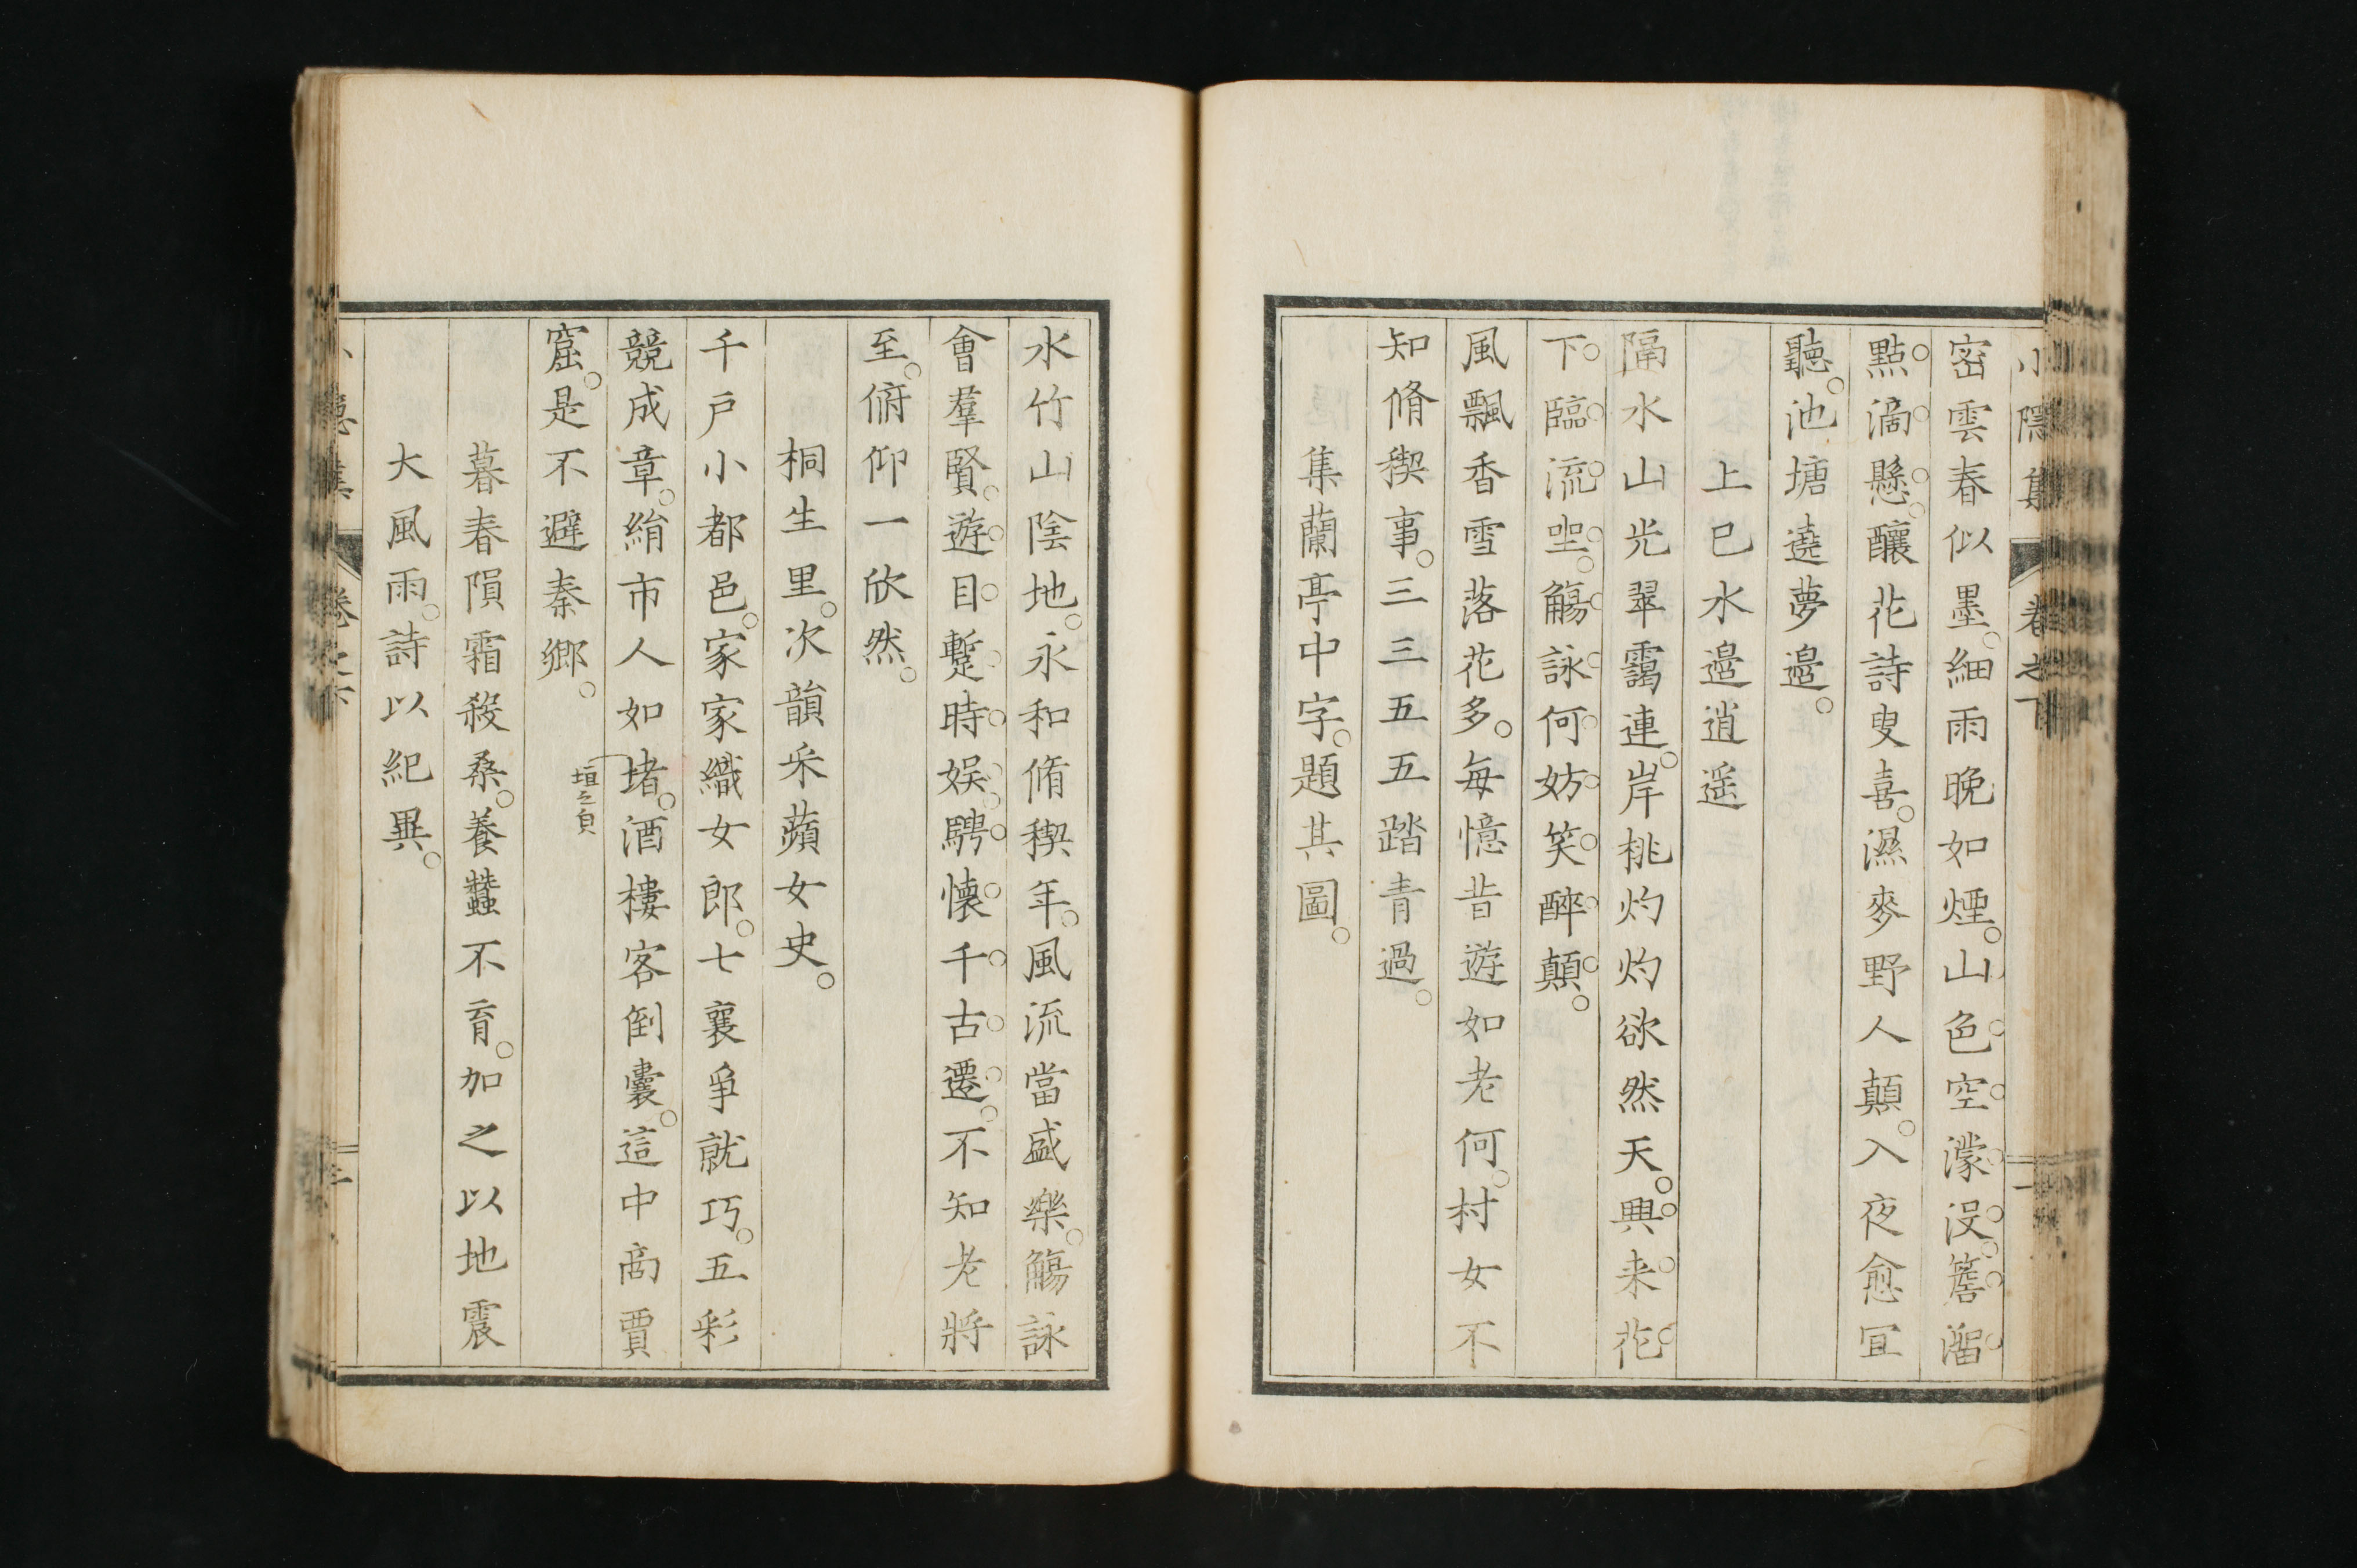 小隱集 卷之下 二
密雲春似墨。細雨晚如煙。山色空濛沒。簷溜
點滴懸。釀花詩叟喜。濕麥野人顛。入夜愈宜
聽。池塘遶夢邉。
上巳水邉逍遥
隔水山光翠靄連。岸桃灼灼欲然天。興来花
下臨流坐。觴詠何妨笑醉顛。
風飄香雪落花多。每憶昔遊如老何。村女不
知脩禊事。三三五五踏青過。
集蘭亭中字。題其圖。
水竹山陰地。永和脩禊年。風流當盛樂。觴詠
會羣賢。遊目蹔時娯。騁懐千古遷。不知老將
至。俯仰一欣然。
桐生里。次韻采蘋女史。
千戸小都邑。家家織女郎。七襄爭就巧。五彩
競成章。絹市人如堵。酒樓客倒囊。這中商賈
垣之負
窟。是不避秦鄉。
暮春隕霜殺桑。養蠶不育。加之以地震
大風雨。詩以紀異。